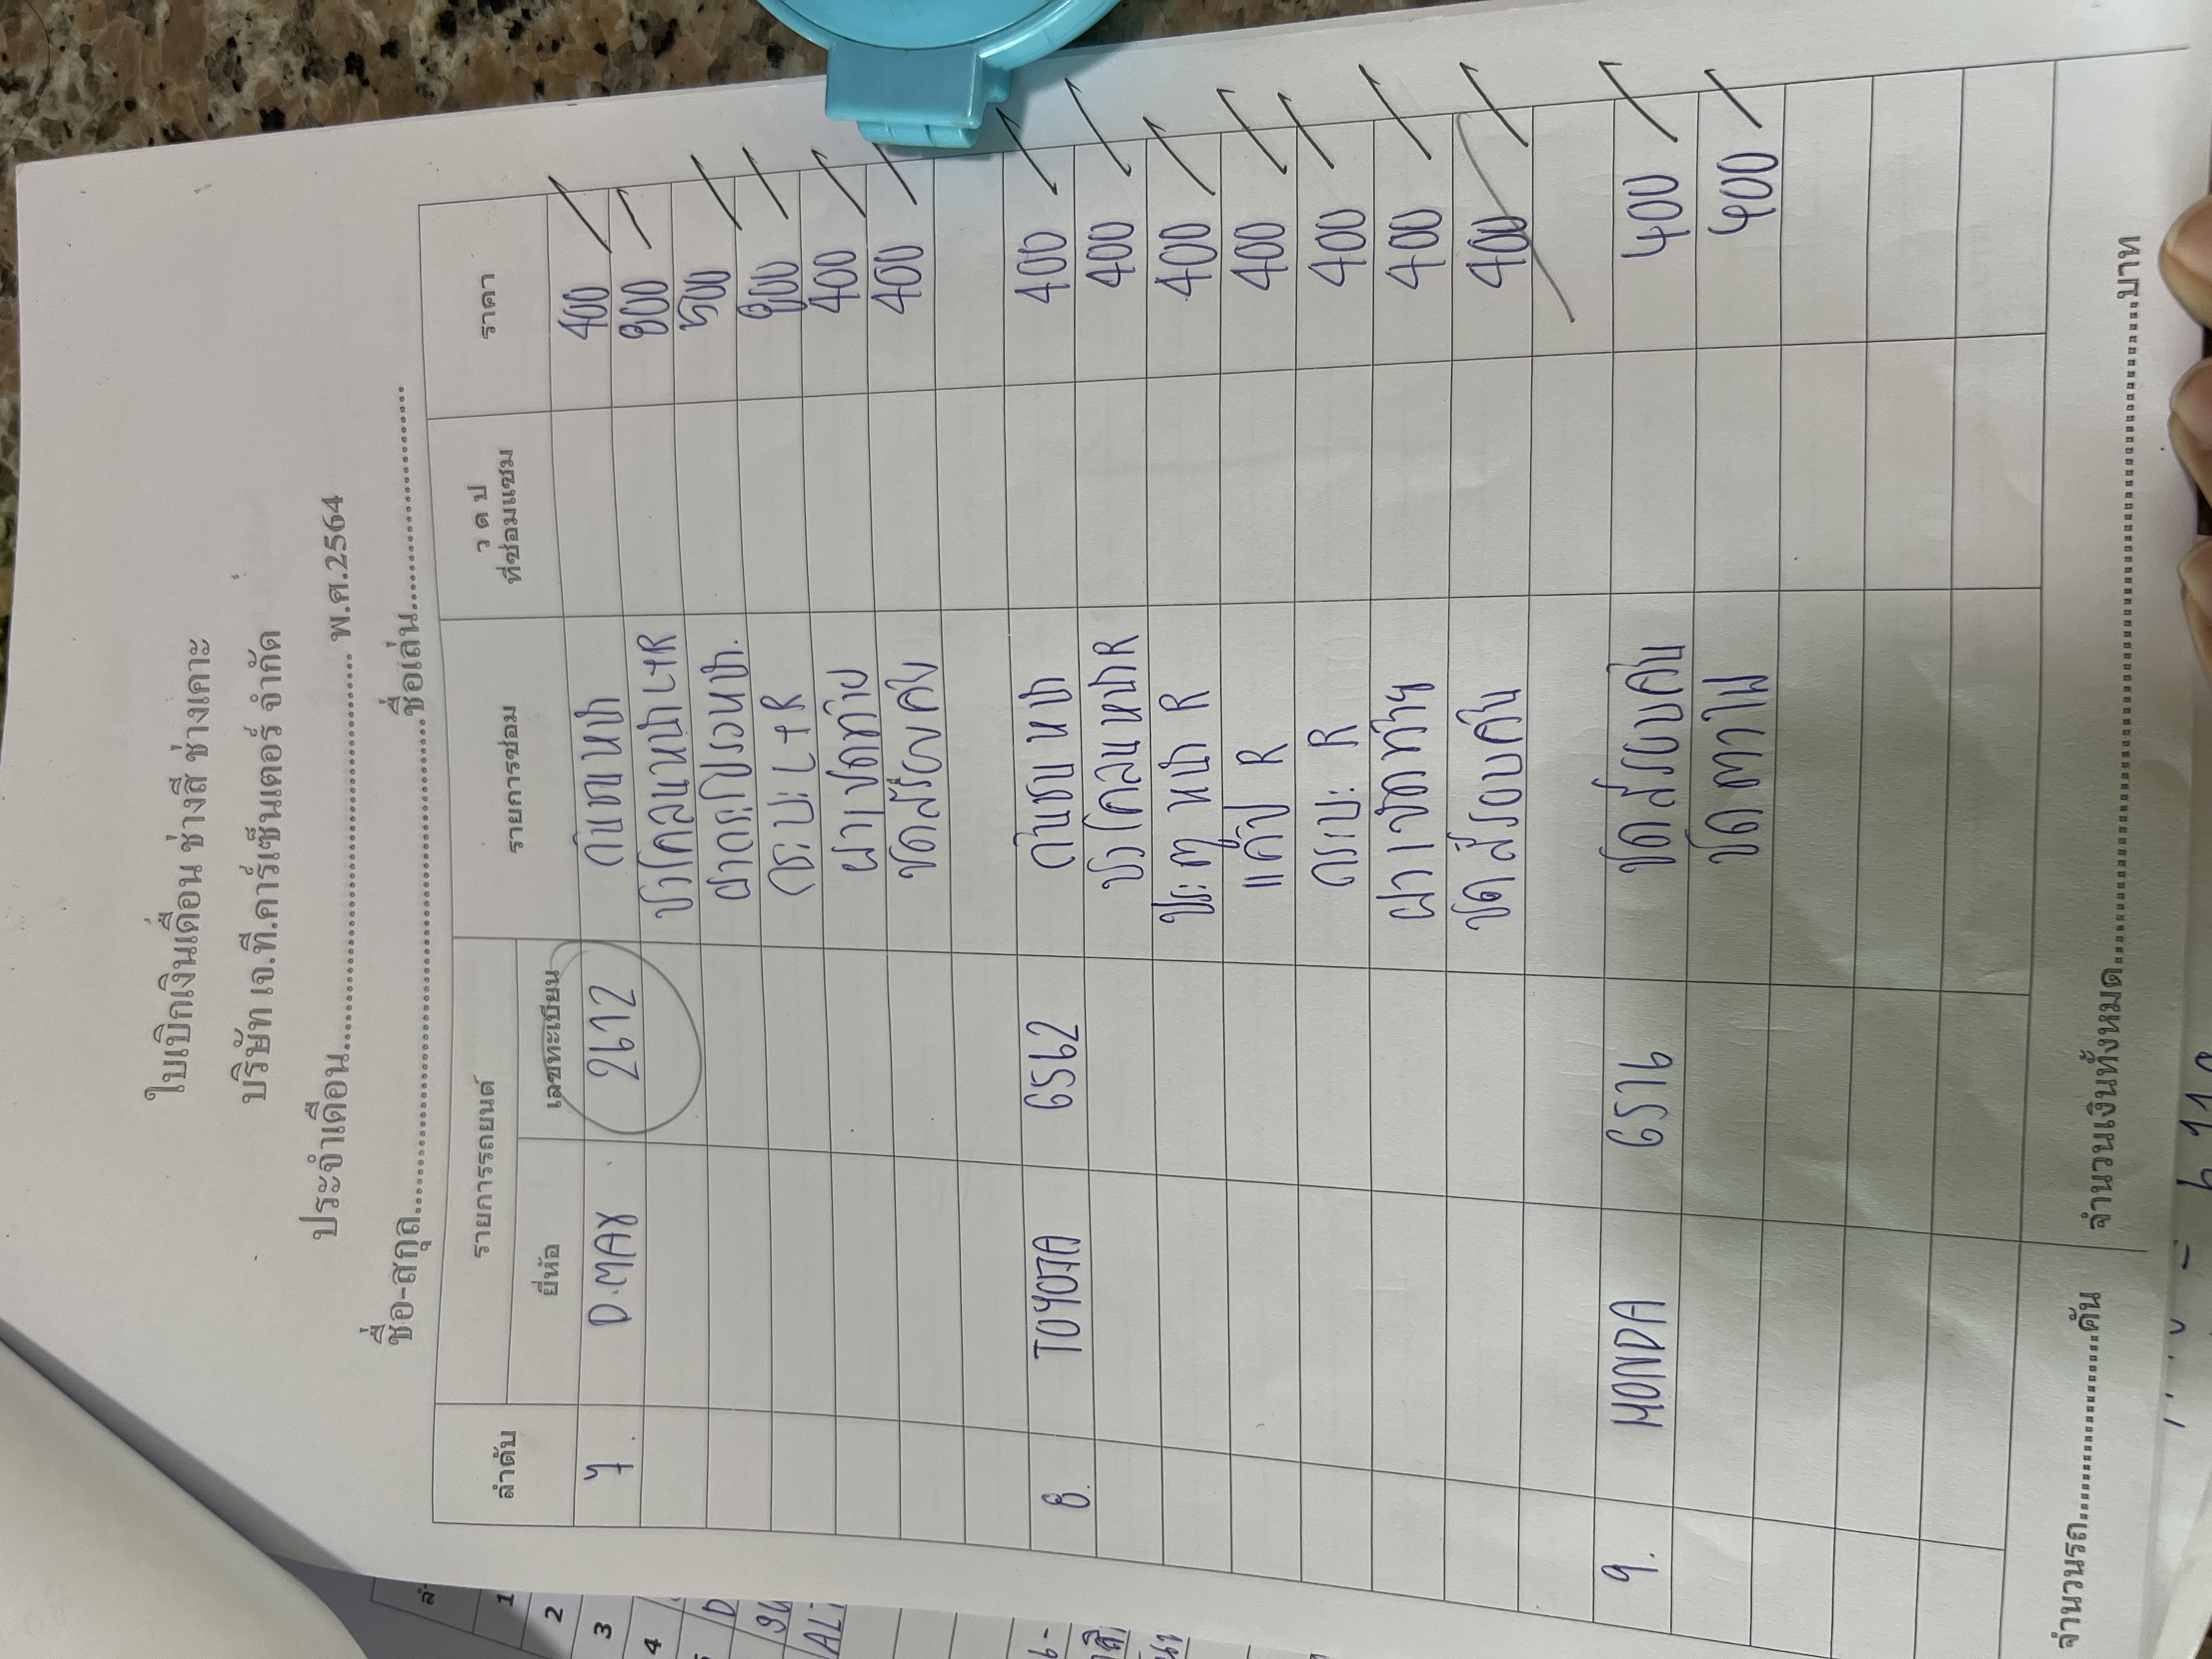 ใบเบิกเงินเดือน ช่างสี ช่างเคาะ
บริษัท เจ.ที.คาร์เซ็นเตอร์ จำกัด
ประจำเดือน.................................................. พ.ศ.2564
ชื่อ-สกุล..................................................ชื่อเล่น....................
ลำดับ รายการรถยนต์ รายการซ่อม ว ด ป ที่ซ่อมแซม ราคา
ยี่ห้อ เลขทะเบียน
7. D.MAX 2612 กันชนหน้า 400
บังโคลนหน้า L+R 800
ฝากระโปรงหน้า. 500
กระบะ L+R 800
ฝาเปิดท้าย 400
ขัดสีรอบคัน 400
8. TOYOTA 6562 กันชน หน้า 400
บังโคลนหน้า R 400
ประตู หน้า R 400
แค๊ป R 400
กระบะ R 400
ฝาเปิดท้าย 400
ขัดสีรอบคัน 400
9. HONDA 6576 ขัดสีรอบคัน 400
ขัดตาไฟ 400
จำนวนรถ....................คัน จำนวนเงินทั้งหมด..................................................บาท
1
2
3
4